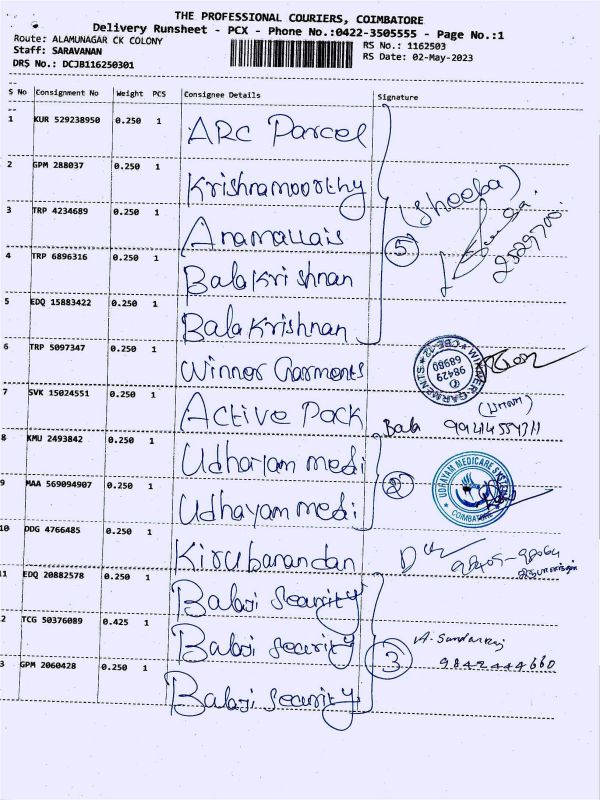 THE PROFESSIONAL COURIERS, COIMBATORE
Delivery Runsheet - PCX - Phone No.:0422-3505555 - Page No.:1
Route: ALAMUNAGAR CK COLONY
RS No.: 1162503
Staff: SARAVANAN
RS Date: 02-May-2023
DRS No.: DCJB116250301
S No Consignment No Weight PCS Consignee Details Signature
1 KUR 529238950 0.250 1 ARC Parcel
2 GPM 288037 0.250 1 Krishnamoorthy
(Sheeba)
3 TRP 4234689 0.250 1 Anamallais
5
4 TRP 6896316 0.250 1 Balakrishnan
5 EDQ 15883422 0.250 1 Balakrishnan
6 TRP 5097347 0.250 1 Winner Garments
WINNER GARMENTS CBE-12
98429
68980
7 SVK 15024551 0.250 1 Active Pack Bala
8 KMU 2493842 0.250 1 Udhayam medi
2
UDHAYAM MEDICARE SYSTEM
COIMBATORE
9 MAA 569094907 0.250 1 Udhayam medi
10 DDG 4766485 0.250 1 Kirubanandan
11 EDQ 20882578 0.250 1 Balaji Security
2 TCG 50376089 0.425 1 Balaji Security
3
A. Sundarraj
9842444660
3 GPM 2060428 0.250 1 Balaji Security